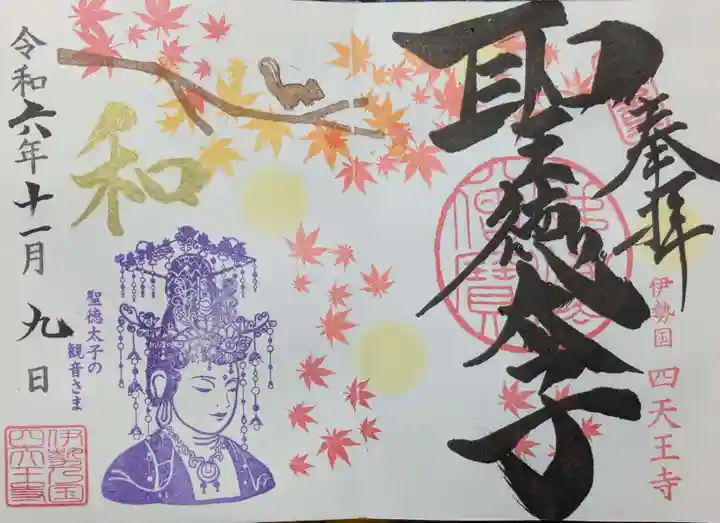 奉拝
聖徳太子
伊勢国 四天王寺
和
聖徳太子の
観音さま
令和六年十一月九日
伊勢乃国
四天王寺